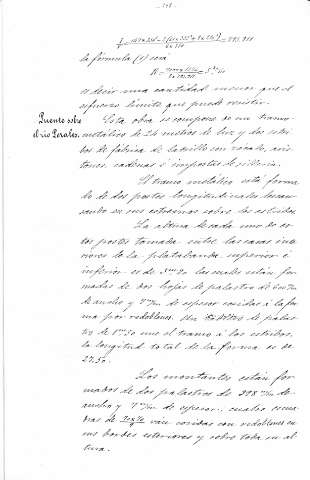 la fórmula (1) será
es decir una cantidad menor que el
esfuerzo límite que puede resistir.
Puente sobre
el río Perales.
Esta obra se compone de un tramo
metálico de 24 metros de luz y dos estri-
bos de fábrica de ladrillo con zócalo, aris-
tones, cadenas é impostas de sillería.
El tramo metálico está forma
do de dos postes longitudinales descan-
sando en sus extremos sobre los estribos.
La altura de cada uno de es-
tos postes tomada entre las caras inte
riores de la platabanda superior é
inferior es de las cuales están for-
madas de dos hojas de palastro de
de ancho y de espesor cosidas á la for
ma por redoblones. Un de palas-
tro de une el tramo á los estribos,
la longitud total de la forma es de
27,50.
Los montantes están for-
mados de dos palastros de 228 m/m de
ancho y 7 m/m de espesor, cuatro escua
dras de van cosidas con redoblones en
sus bordes exteriores y sobre toda su al
tura.